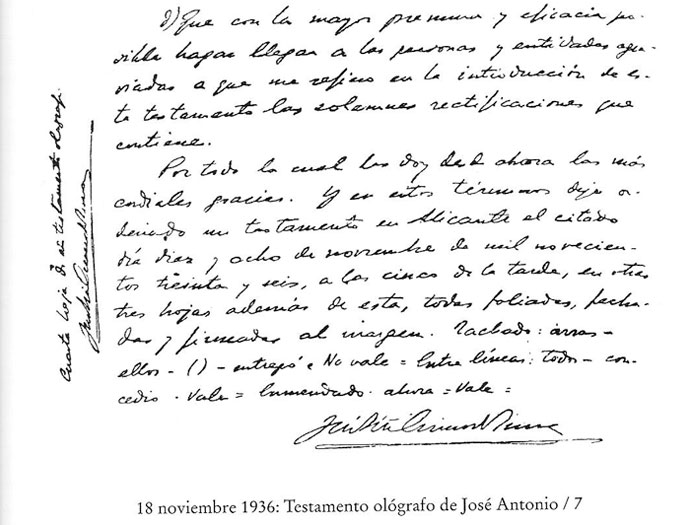 d) Que con la mayor premura y eficacia po-
sible hagan llegar a las personas y entidades agra-
viadas a que me refiero en la introducción de es-
te testamento las solemnes rectificaciones que
contiene.
Por todo lo cual les doy desde ahora las más
cordiales gracias. Y en estos términos dejo or-
denado mi testamento en Alicante el citado
día diez y ocho de noviembre de mil novecien-
tos treinta y seis, a las cinco de la tarde, en otras
tres hojas además de esta, todas foliadas, fecha-
das y firmadas al margen. Tachado:
ellos - () - entregó = No vale = Entre líneas: todo - con-
cedió - Vale = Enmendado - ahora = Vale =
José Antonio Primo de Rivera
Cuarta hoja de mi testamento ológraf.
José Antonio Primo de Rivera
18 noviembre 1936: Testamento ológrafo de José Antonio / 7